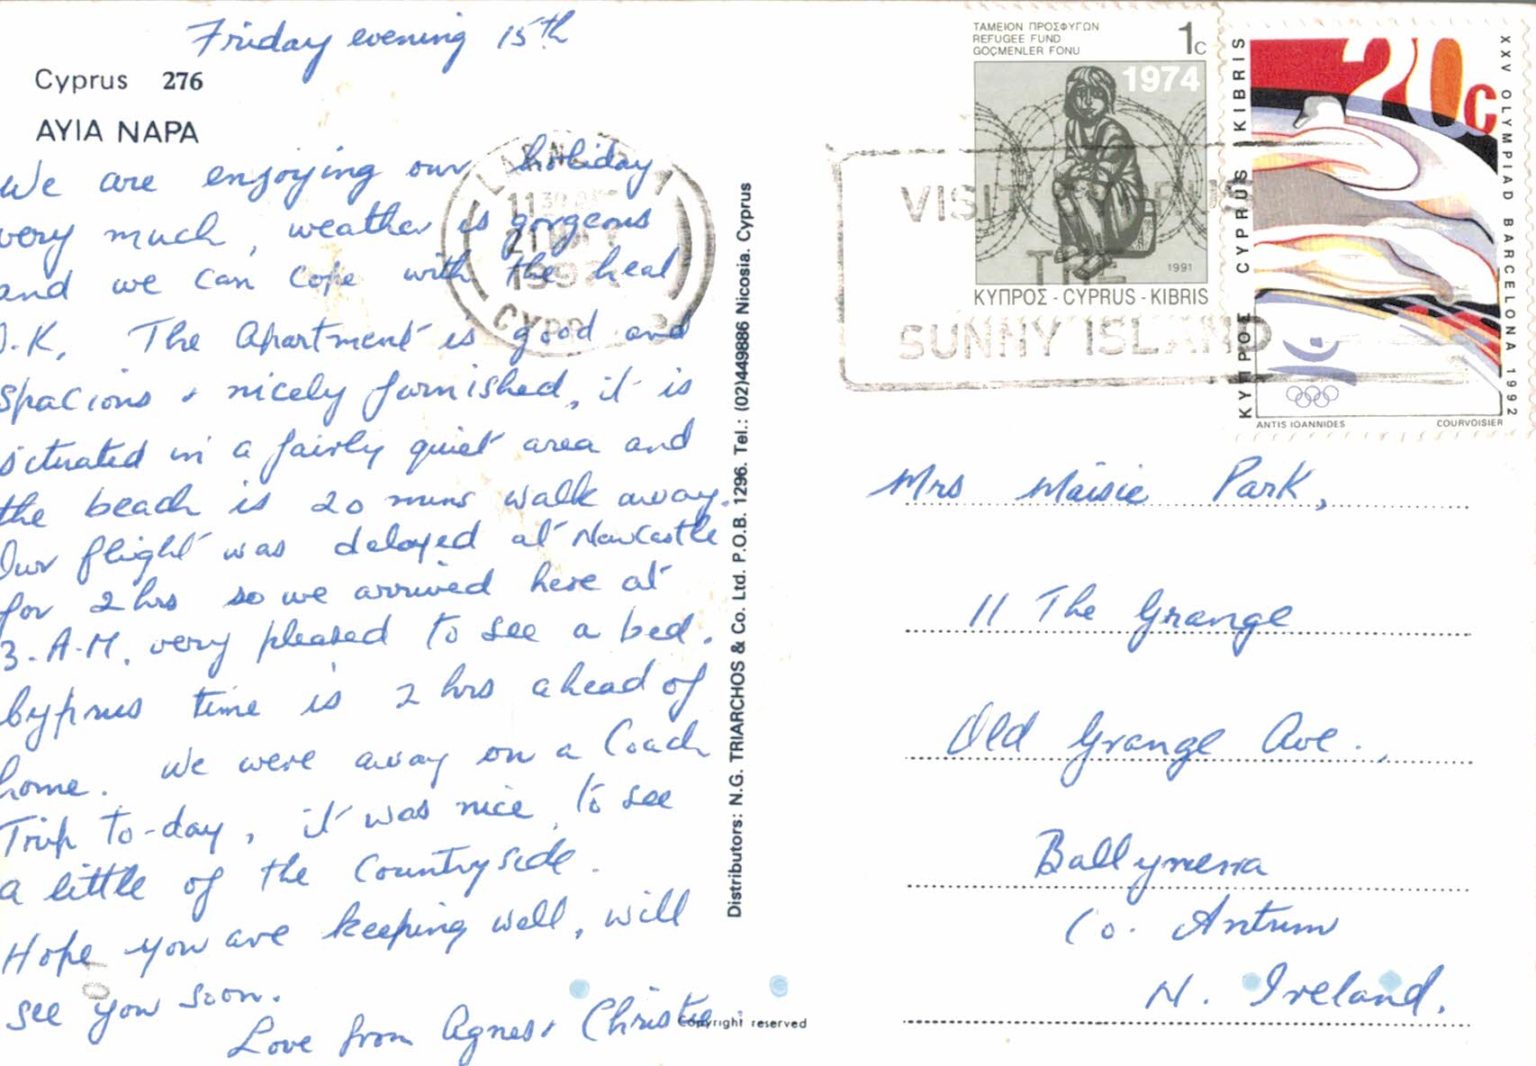 Friday evening 15th
Cyprus 276
AYIA NAPA
We are enjoying our holiday
very much, weather is gorgeous
and we can cope with the heat
O.K. The Apartment is good and
spacious + nicely furnished, it is
situated in a fairly quiet area and
the beach is 20 mins walk away.
Our flight was delayed at Newcastle
for 2 hrs so we arrived here at
3.A.M. very pleased to see a bed.
Cyprus time is 2 hrs ahead of
home. We were away on a Coach
Trip to-day, it was nice to see
a little of the Countryside.
Hope you are keeping well, will
see you soon.
Love from Agnes + Christie.
Copyright reserved
Distributors: N.G. TRIARCHOS & Co. Ltd. P.O.B. 1296. Tel.: (02)449886 Nicosia. Cyprus
11 30
21
CYPRUS
VISIT CYPRUS
THE
SUNNY ISLAND
ΤΑΜΕΙΟΝ ΠΡΟΣΦΥΓΩΝ
REFUGEE FUND
GÖÇMENLER FONU
1c
1974
1991
ΚΥΠΡΟΣ - CYPRUS - KIBRIS
20c
ΚΥΠΡΟΣ CYPRUS KIBRIS
XXV OLYMPIAD BARCELONA 1992
ANTIS IOANNIDES
COURVOISIER
Mrs Maisie Park,
11 The Grange
Old Grange Ave.,
Ballymena
Co. Antrim
N. Ireland.